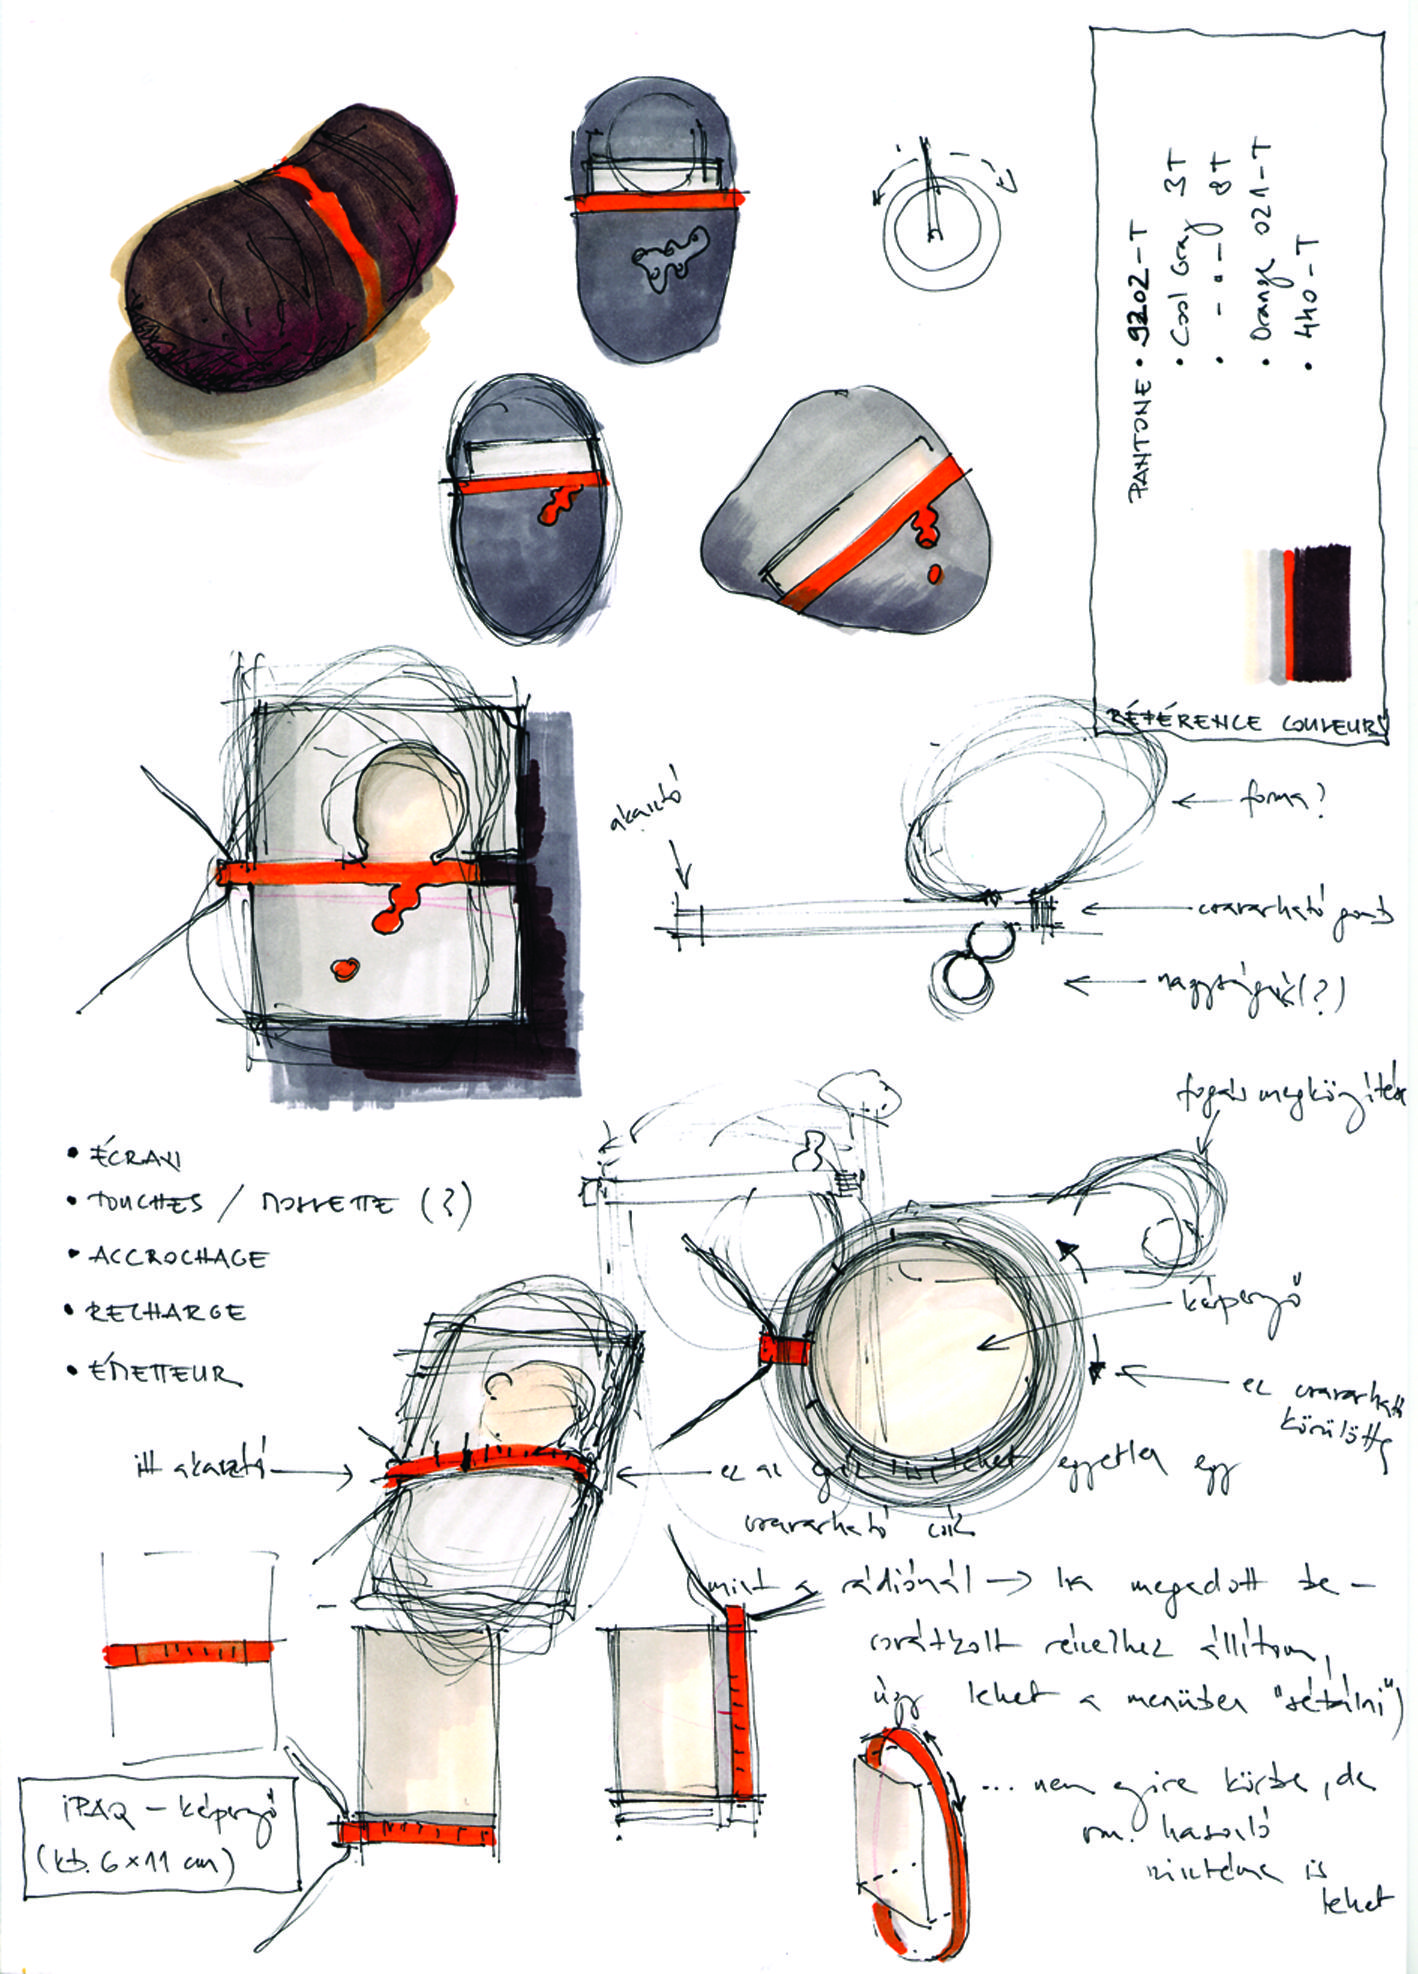 PANTONE • 9202-T
• Cool Gray 3T
• - " - 8T
• Orange 021-T
• 440-T
RÉFÉRENCE COULEURS
akasztó
forma?
csavarható gomb
nagyságuk(?)
fogás megközítése
• ÉCRAN
• TOUCHES / MOLLETTE (?)
• ACCROCHAGE
• RECHARGE
• ÉMETTEUR
képernyő
ez csavarható
körülötte
itt akasztó
ez az lehet egyetlen egy
csavarható csík
(mint a rádiónál → ha megadott be-
osrátzolt részelhez állítom,
úgy lehet a menüben "sétálni")
iPAQ - képernyő
(kb. 6×11 cm)
... nem körbe, de
vm. hasonló
is
lehet